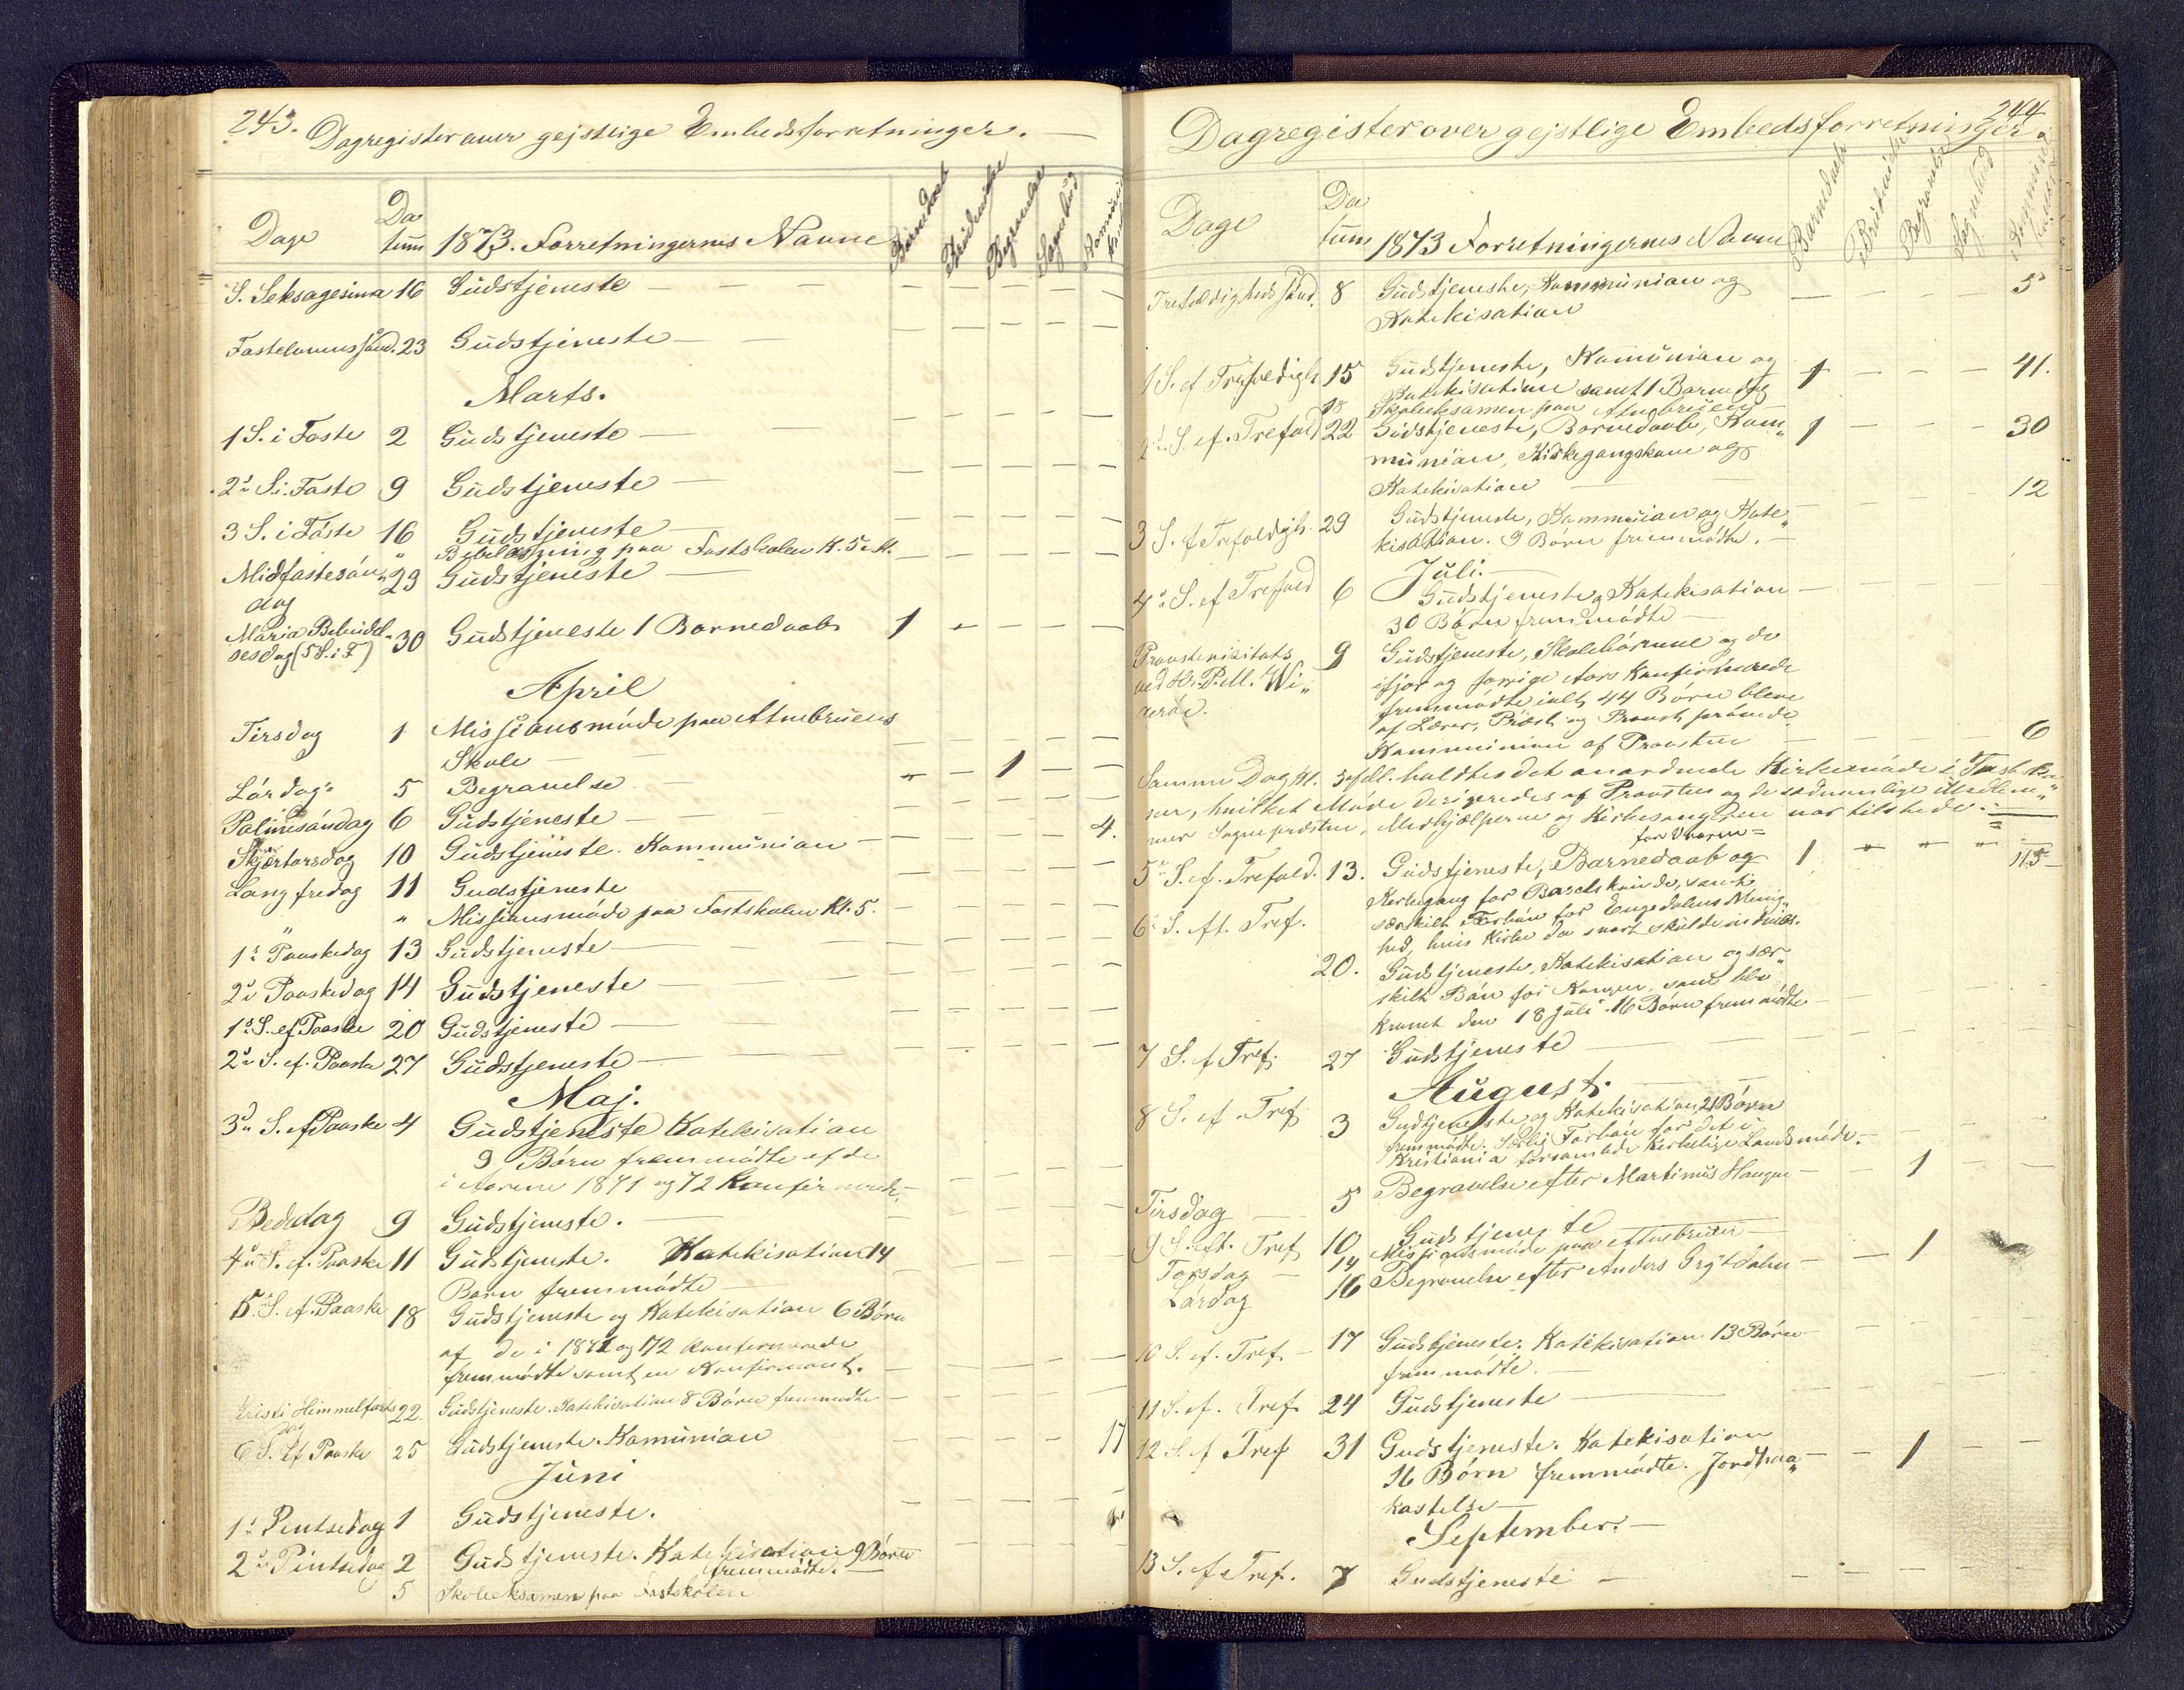 243. Dagregister over gejstlige Embedsforretninger.
Dage Da tum 1873. Forretningernes Navne Barnedaab Begravelse
S. Seksagesima 16 Gudstjeneste
Fastelavns sønd. 23 Gudstjeneste
Marts.
1 S. i Faste 2 Gudstjeneste
2n S. i. Faste 9 Gudstjeneste
3 S. i Faste 16 Gudstjeneste
" Bibellæsning paa Fastskolen Kl. 5
Midfastesøn„ 23 Gudstjeneste
dag
Maria Bebudel-
sesdag (5 S. i F) 30 Gudstjeneste 1 Barnedaab 1
April
Tirsdag 1 Missionsmøde paa Atnebruens
Skole
Lørdag 5 Begravelse 1
Palmesøndag 6 Gudstjeneste
Skjærtorsdag 10 Gudstjeneste. Kommunion 4.
Langfredag 11 Gudstjeneste
" " Missionsmøde paa Fastskolen Kl. 5.
1s Paaskedag 13 Gudstjeneste
2n Paaskedag 14 Gudstjeneste
1s S. ef Paaske 20 Gudstjeneste
2n S. ef. Paaske 27 Gudstjeneste
Maj.
3d S. ef Paaske 4 Gudstjeneste Katekisation
9 Børn fremmødte af de
i Aarene 1871 og 72 Konfirmerede.
Bededag 9 Gudstjeneste.
4n S. ef. Paaske 11 Gudstjeneste. Katekisation 14
Børn fremmødte
5. S. ef. Paaske 18 Gudstjeneste og Katekisation 6 Børn
af de i 1871 og 72 Konfirmerede
fremmødte samt en Konfirmant.
Kristi Himmelfarts 22 Gudstjeneste. Katekisation 8 Børn fremmødte
dag
6 S. ef Paaske 25 Gudstjeneste. Kommunion 17
Juni
1s Pintsedag 1 Gudstjeneste.
2n Pintsedag 2 Gudstjeneste. Katekisation 9 Børn
fremmødte.
5 Skoleeksamen paa Fastskolen
244
Dagregister over gejstlige Embedsforretninger.
Dage Da tum 1873 Forretningernes Navne Barnedaab Begravelse
Trefoldigheds sønd. 8 Gudstjeneste, Kommunion og 5
Katekisation
1 S. ef Trefoldigh 15 Gudstjeneste, Kommunion og 1 41.
Katekisation samt 1 Barnedaab
18 Skoleeksamen paa Atnebruen
2d S. ef. Trefold 22 Gudstjeneste, Barnedaab, Kom„ 1 30
munion, Kirkegangskone og
Katekisation
3 S. ef Trefoldigh. 29 Gudstjeneste, Kommunion og Kate„ 12
kisation. 9 Børn fremmødte.
Juli.
4n S. ef Trefold 6 Gudstjeneste og Katekisation
30 Børn fremmødte
Provstevisitats 9 Gudstjeneste, Skolebørnene og de
ved Hr. P. M. Wi„ ifjor og forrige Aars Konfirmerede
fremmødte ialt 44 Børn bleve
af Lærer, Præst og Provst prøvede
Kommunion af Provsten 6
Samme Dag Kl. holdtes det anordnede Kirkemøde i Fastsko„
len, hvilket Møde dirigeredes af Provsten og de sædvanlige Medlem„
mer Sognepræsten, Medhjælperne og Kirkesangeren var tilstede.
5n S. ef. Trefold. 13. Gudstjeneste, Barnedaab og 1 " " " 115
Kirkegang for Barselkvinde, samt
særskilt Forbøn for Engerdalens Menig„
hed, hvis Kirke da snart skulde indvies.
6n S. eft. Tref. 20. Gudstjeneste, Katekisation og sær„
skilt Bøn for Kongen, som blev
kronet den 18 Juli. 16 Børn fremmødte
7 S. ef Tref. 27 Gudstjeneste
August.
8 S. ef. Tref. 3 Gudstjeneste og Katekisation, 21 Børn
fremmødte. Særlig Forbøn for det i
Kristiania forsamlede kirkelige Landsmøde.
Tirsdag 5 Begravelse efter Martinus Haugen 1
9 S. eft. Tref 10 Gudstjeneste
Torsdag 14 Missionsmøde paa Atnebruen
Lørdag 16 Begravelse efter Anders Grøtdalen 1
10 S. ef. Tref 17 Gudstjeneste. Katekisation 13 Børn
fremmødte.
11 S. ef. Tref 24 Gudstjeneste
12 S. ef Tref 31 Gudstjeneste. Katekisation
16 Børn fremmødte. Jordpaa„ 1
kastelse
September.
13 S. ef Tref. 7 Gudstjeneste